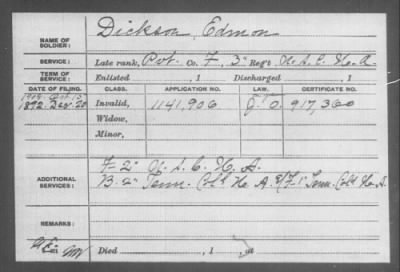 NAME OF SOLDIER: Dickson, Edmon
SERVICE: Late rank, Pvt. Co. F, 3" Reg't U.S.C. He. A.
TERM OF SERVICE: Enlisted , 1 Discharged , 1
DATE OF FILING. CLASS. APPLICATION NO. LAW. CERTIFICATE NO.
1892. Dec. 20 Invalid, 1141,906 J. O. 917,360
Widow,
Minor,
ADDITIONAL SERVICES: F-2" U. S. C. H. A.
B. 2" Tenn. Cold He. A. & F. 1" Tenn. Cold He. A.
REMARKS:
Died , 1 , at